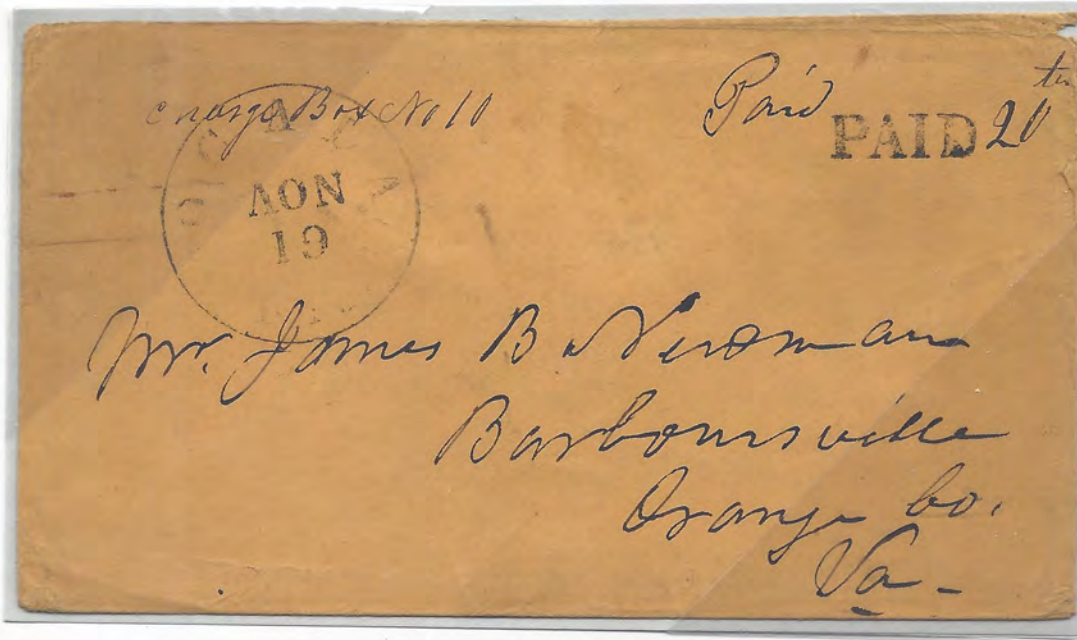 charge Box No 10
Paid
PAID 20 cts
OCALA
ΛON
19
Mr. James B Newman
Barboursville
Orange Co.
Va -